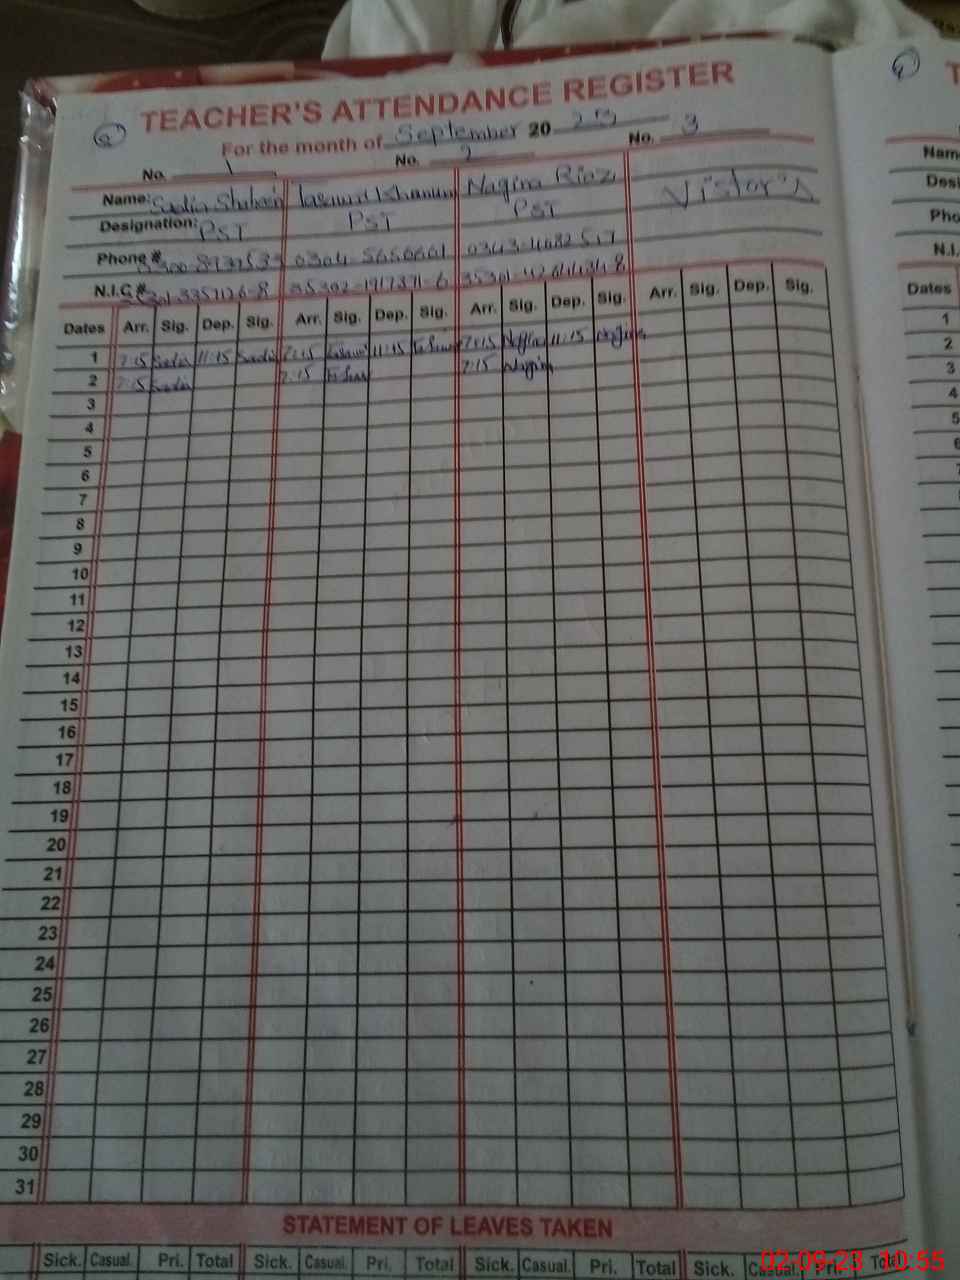 TEACHER'S ATTENDANCE REGISTER
For the month of September 20 23
No. 1 No. 2 No. 3
Name: Sadia Khanum Nagina Riaz Visitor's
Designation: PST PST PST
Phone # 0304-5656661
N.I.C #
Dates Arr. Sig. Dep. Sig. Arr. Sig. Dep. Sig. Arr. Sig. Dep. Sig. Arr. Sig. Dep. Sig.
1 7:15 Sadia 11:15 Sadia 7:15 11:15 7:15 Nagina 11:15 Nagina
2 7:15 Sadia 7:15 7:15 Nagina
3
4
5
6
7
8
9
10
11
12
13
14
15
16
17
18
19
20
21
22
23
24
25
26
27
28
29
30
31
STATEMENT OF LEAVES TAKEN
Sick. Casual. Pri. Total Sick. Casual. Pri. Total Sick. Casual. Pri. Total Sick. Casual. Pri. Total
Dates
1
2
3
4
5
02-09-23 10:55